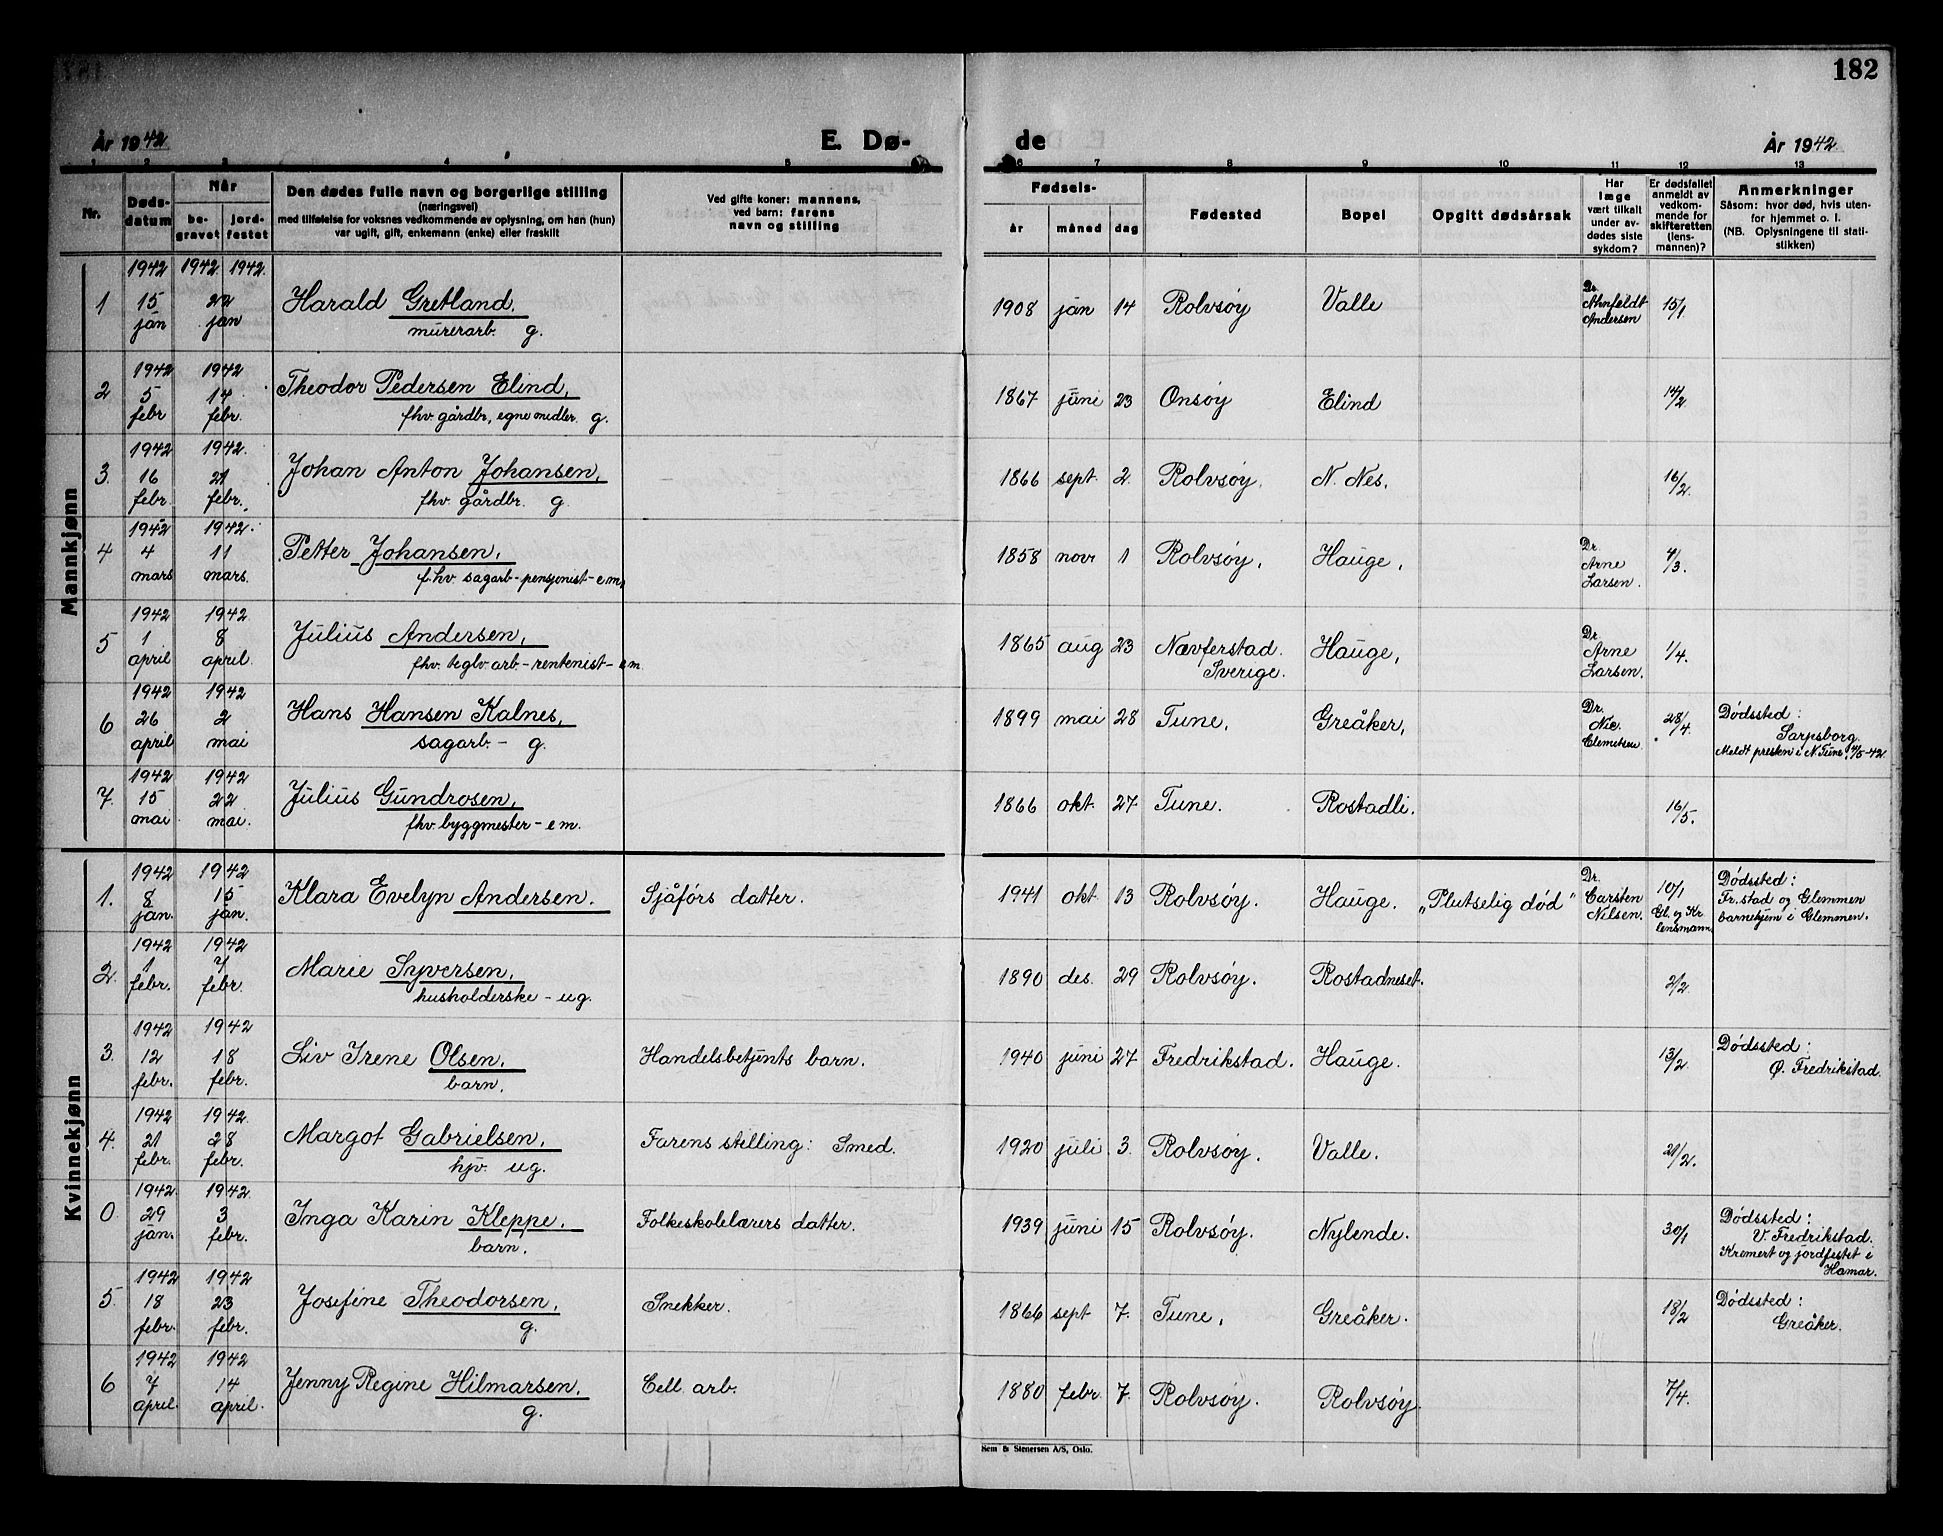 182
År 1942
E. Dø-
de
År 1942
1 2 3 4 5
6 7 8 9 10 11 12 13
Nr.
Døds-
datum
Når
be-
gravet
jord-
festet
Den dødes fulle navn og borgerlige stilling
(næringsvei)
med tilføielse for voksnes vedkommende av oplysning, om han (hun)
var ugift, gift, enkemann (enke) eller fraskilt
Ved gifte koner: mannens,
ved barn: farens
navn og stilling
Fødsels-
år måned dag
Fødested
Bopel
Opgitt dødsårsak
Har
læge
vært tilkalt
under av-
dødes siste
sykdom?
Er dødsfallet
anmeldt av
vedkom-
mende for
skifteretten
(lens-
mannen)?
Anmerkninger
Såsom: hvor død, hvis uten-
for hjemmet o. l.
(NB. Oplysningene til stati-
stikken)
Mannkjønn
1942 1942 1942.
1 15 jan 22 jan Harald Gretland. 1908 jan 14 Rolvsøy Valle Dr. Ahnfeldt Andersen 15/1
murerarb. g.
1942 1942
2 5 febr 14 febr. Theodor Pedersen Elind, 1867 juni 23 Onsøy Elind 14/2
fhv. gårdbr, egne midler g.
1942 1942.
3. 16 febr. 21 febr. Johan Anton Johansen, 1866 sept. 2. Rolvsøy. N. Nes. 16/2.
fhv. gårdbr. g.
1942 1942.
4 4 mars 11 mars. Petter Johansen, 1858 novr 1 Rolvsøy, Hauge, Dr. Arne Larsen. 4/3.
f.hv. sagarb-pensjonist-em,
1942 1942
5 1 april 8 april. Julius Andersen, 1865 aug 23 Nævferstad. Sverige. Hauge, Dr. Arne Larsen. 1/4.
fhv. teglv. arb-rentenist-em.
1942 1942
6 26 april 2 mai Hans Hansen Kalnes, 1899 mai 28 Tune, Greåker, Dr. Nic. Clemetsen 28/4 Dødssted: Sarpsborg.
sagarb.- g. Meldt presten i N Tune, 4/5-42
1942 1942
7. 15 mai 22 mai. Julius Gundrosen, 1866 okt. 27 Tune. Rostadli. 16/5.
fhv. byggmester-em.
Kvinnekjønn
1942 1942
1. 8 jan. 15 jan. Klara Evelyn Andersen. Sjåførs datter. 1941 okt 13 Rolvsøy. Hauge. „Plutselig død" Dr. Carsten Nilsen. 10/1 Gl. og Kr. lensmann. Dødssted:
Fr.stad og Glemmen
barnehjem i Glemmen.
1942 1942
2. 1 febr. 7 febr. Marie Syversen, 1890 des. 29 Rolvsøy. Rostadneset. 2/2.
husholderske-ug.
1942 1942
3. 12 febr. 18 febr. Liv Irene Olsen. Handelsbetjents barn. 1940 juni 27 Fredrikstad. Hauge. 13/2 Dødssted:
barn. Ø. Fredrikstad.
1942 1942.
4. 21 febr. 28 febr. Margot Gabrielsen, Farens stilling: Smed. 1920 juli 3. Rolvsøy. Valle. 21/2.
hjv. ug.
1942 1942
0. 29 jan. 3 febr. Inga Karin Kleppe. Folkeskolelærers datter. 1939 juni 15 Rolvsøy. Nylende. 30/1 Dødssted:
barn. V. Fredrikstad.
Kremert og jordfestet i
Hamar.
1942 1942
5. 18 febr. 23 febr. Josefine Theodorsen, Snekker. 1866 sept 7. Tune, Greåker. 18/2 Dødssted:
g. Greåker.
1942 1942
6 7 april. 14 april. Jenny Regine Hilmarsen. Cell. arb. 1880 febr. 7. Rolvsøy. Rolvsøy. 7/4.
g.
Sem & Stenersen A/S, Oslo.